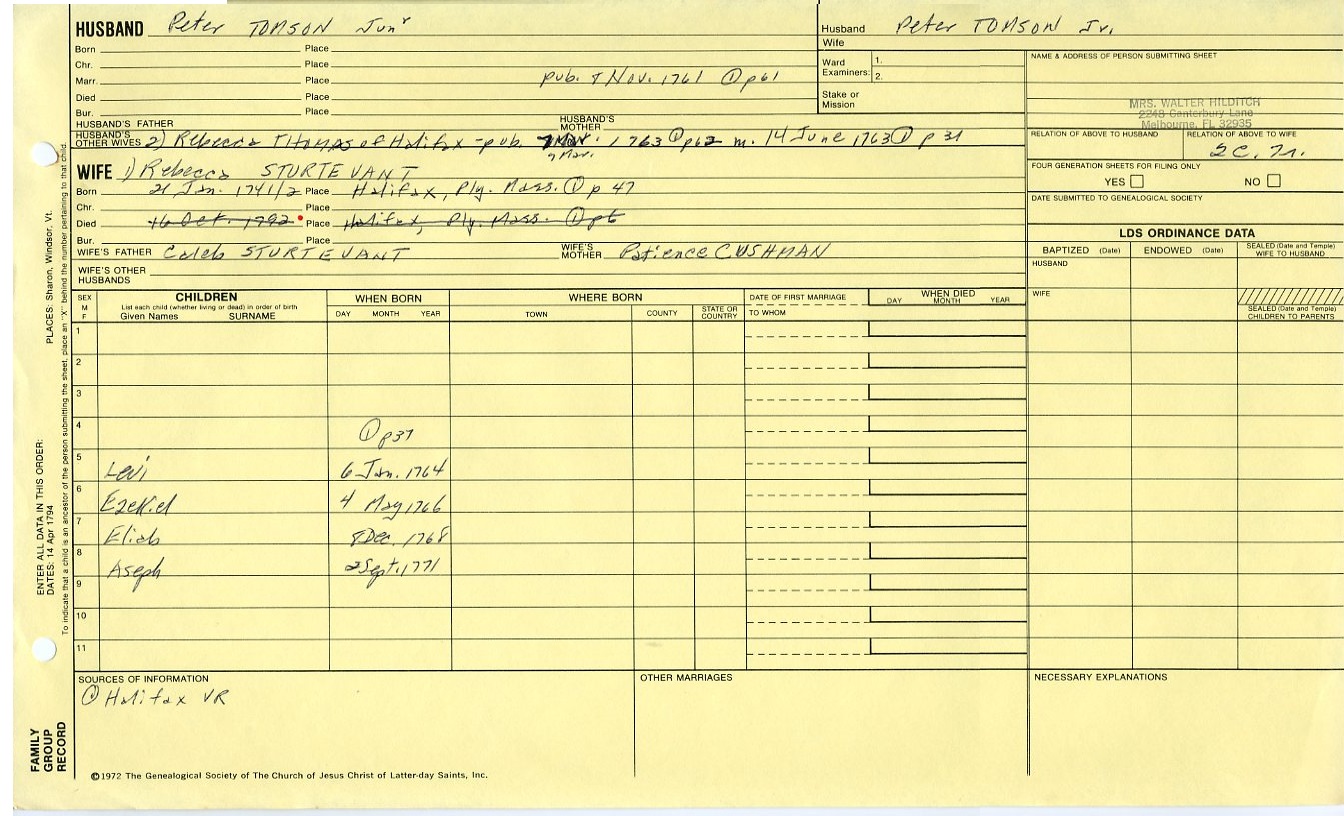 HUSBAND Peter TOMSON Junr
Husband Peter TOMSON Jr.
Wife
Born Place
Chr. Place
Marr. Place pub. 8 Nov. 1761 ① p61
Died Place
Bur. Place
Ward Examiners: 1. 2.
Stake or Mission
NAME & ADDRESS OF PERSON SUBMITTING SHEET
MRS. WALTER HILDITCH
2248 Canterbury Lane
Melbourne, FL 32935
HUSBAND'S FATHER HUSBAND'S MOTHER
HUSBAND'S OTHER WIVES 2) Rebecca THOMPS of Halifax - pub. 1763 ① p62 m. 14 June 1763 ① p 31
7 Mar.
RELATION OF ABOVE TO HUSBAND RELATION OF ABOVE TO WIFE
2C. 7r.
FOUR GENERATION SHEETS FOR FILING ONLY
YES NO
DATE SUBMITTED TO GENEALOGICAL SOCIETY
WIFE 1) Rebecca STURTEVANT
Born 21 Jan. 1741/2 Place Halifax, Ply. Mass. ① p 47
Chr. Place
Died 16 Oct. 1792 Place Halifax, Ply. Mass. ① p6
Bur. Place
WIFE'S FATHER Caleb STURTEVANT WIFE'S MOTHER Patience CUSHMAN
WIFE'S OTHER HUSBANDS
LDS ORDINANCE DATA
BAPTIZED (Date) ENDOWED (Date) SEALED (Date and Temple) WIFE TO HUSBAND
HUSBAND
WIFE
SEALED (Date and Temple) CHILDREN TO PARENTS
SEX M F
CHILDREN
List each child (whether living or dead) in order of birth
Given Names SURNAME
WHEN BORN
DAY MONTH YEAR
WHERE BORN
TOWN COUNTY STATE OR COUNTRY
DATE OF FIRST MARRIAGE
TO WHOM
WHEN DIED
DAY MONTH YEAR
1
2
3
4 ① p37
5 Levi 6 Jan. 1764
6 Ezekiel 4 May 1766
7 Eliab 8 Dec. 1768
8 Aseph 2 Sept. 1771
9
10
11
SOURCES OF INFORMATION
① Halifax VR
OTHER MARRIAGES
NECESSARY EXPLANATIONS
©1972 The Genealogical Society of The Church of Jesus Christ of Latter-day Saints, Inc.
PLACES: Sharon, Windsor, Vt.
To indicate that a child is an ancestor of the person submitting the sheet, place an "X" behind the number pertaining to that child.
ENTER ALL DATA IN THIS ORDER:
DATES: 14 Apr 1794
FAMILY GROUP RECORD